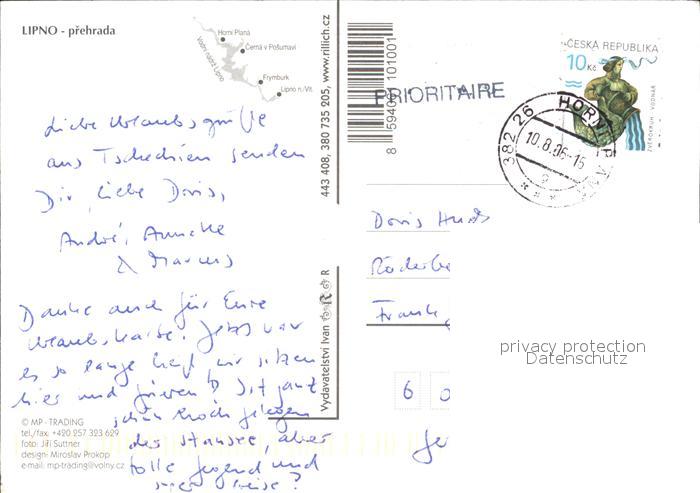 LIPNO - přehrada
Horní Planá
Černá v Pošumaví
Vodní nádrž Lipno
Frymburk
Lipno n./Vlt.
443 408, 380 735 205, www.rillich.cz
8 59409 101001
PRIORITAIRE
ČESKÁ REPUBLIKA
10 Kč
ZVĚROKRUH - VODNÁŘ
382 26 HORNÍ PLANÁ
10.8.06-16
Liebe Urlaubsgrüße
aus Tschechien senden
Dir, liebe Doris,
André, Annette
& Marcus
Danke auch für Eure
Urlaubskarte. Jetzt war
es so lange heiß wir sitzen
hier und frieren! Ist ganz
schön
der Stausee aber
tolle Gegend und
super
Vydavatelství Ivan R R
© MP - TRADING
tel./fax. +420 257 323 629
foto: Jiří Suttner
design: Miroslav Prokop
e-mail: mp-trading@volny.cz
Doris
Röderbe
Frank
6 0
Ge
privacy protection
Datenschutz